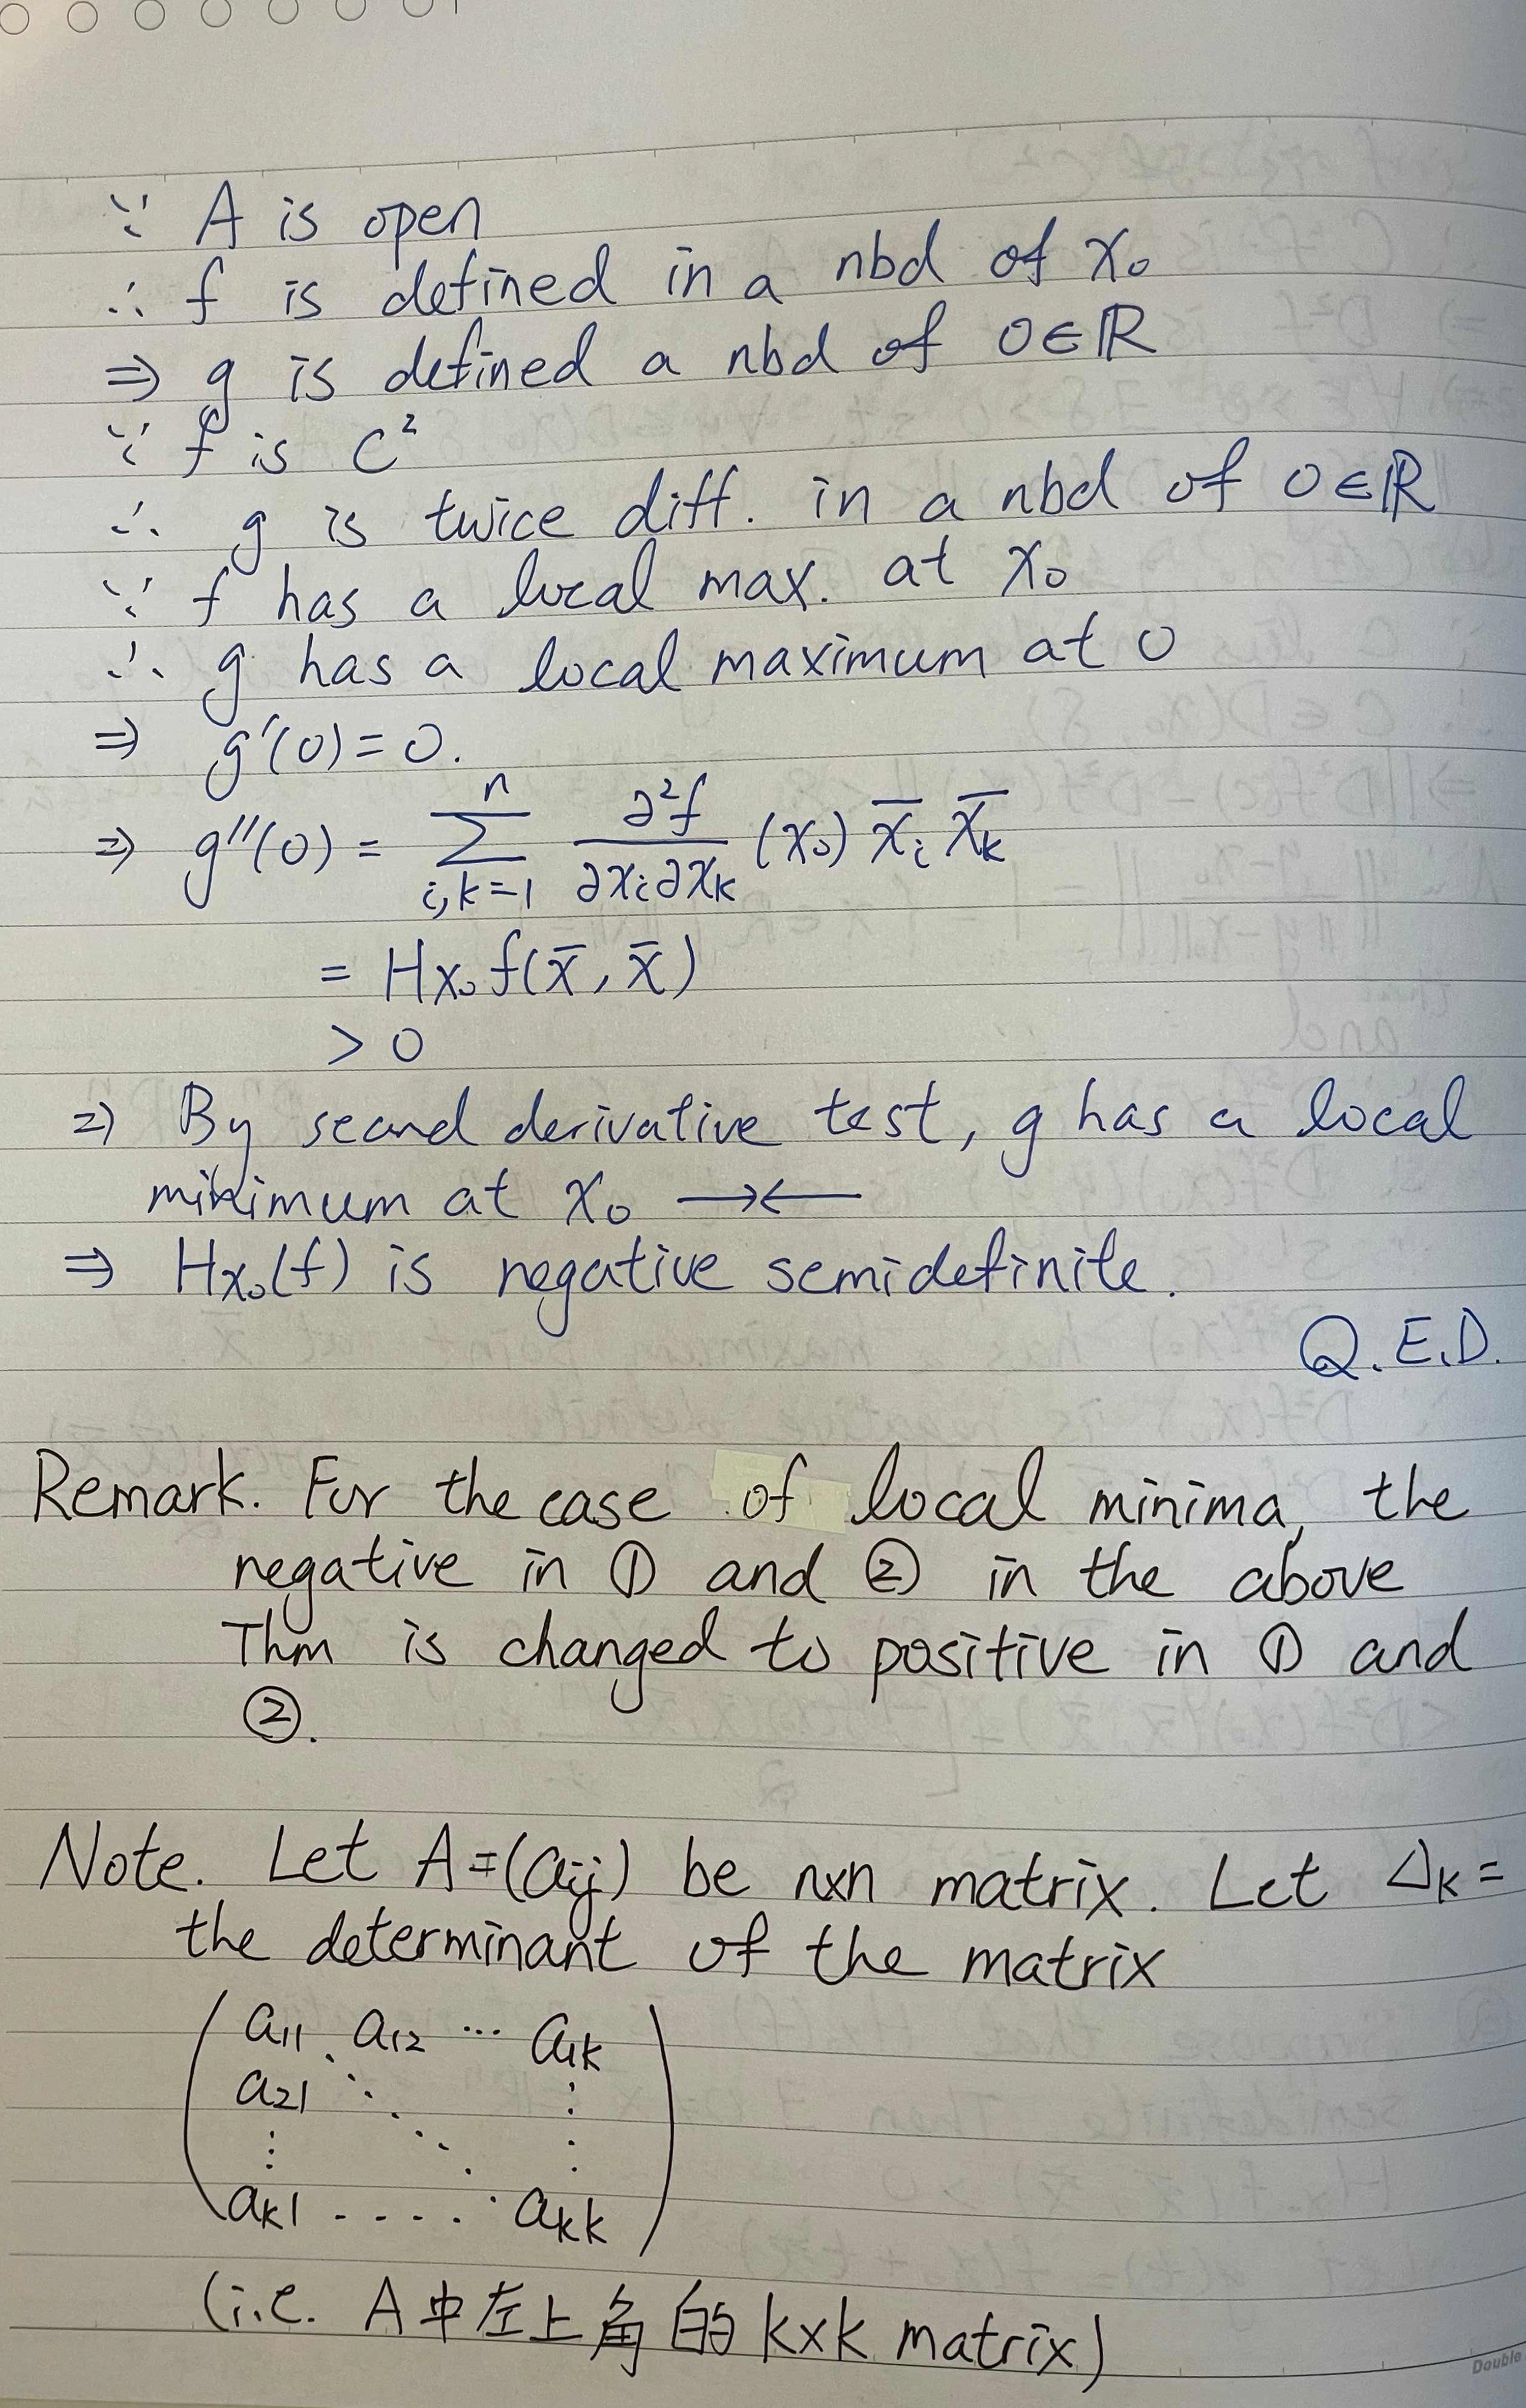 ∵ A is open
∴ f is defined in a nbd of x₀
⇒ g is defined a nbd of 0∈ℝ
∵ f is C²
∴ g is twice diff. in a nbd of 0∈ℝ
∵ f has a local max. at x₀
∴ g has a local maximum at 0
⇒ g'(0)=0.
⇒ g''(0) = \sum_{i,k=1}^{n} \frac{∂²f}{∂x_i∂x_k} (x₀) \bar{x}_i \bar{x}_k
= Hx₀f(x̄, x̄)
> 0
⇒ By second derivative test, g has a local
minimum at x₀ →←
⇒ Hx₀(f) is negative semidefinite.
Q.E.D.
Remark. For the case of local minima, the
negative in ① and ② in the above
Thm is changed to positive in ① and
②.
Note. Let A=(aij) be n×n matrix. Let Δk=
the determinant of the matrix
( a11 a12 ⋯ a1k )
a21 ⋱ ⋮
⋮ ⋱ ⋮
ak1 ‐ ‐ ‐ ‐ ‐ akk
(i.e. A中左上角的 k×k matrix)
Double